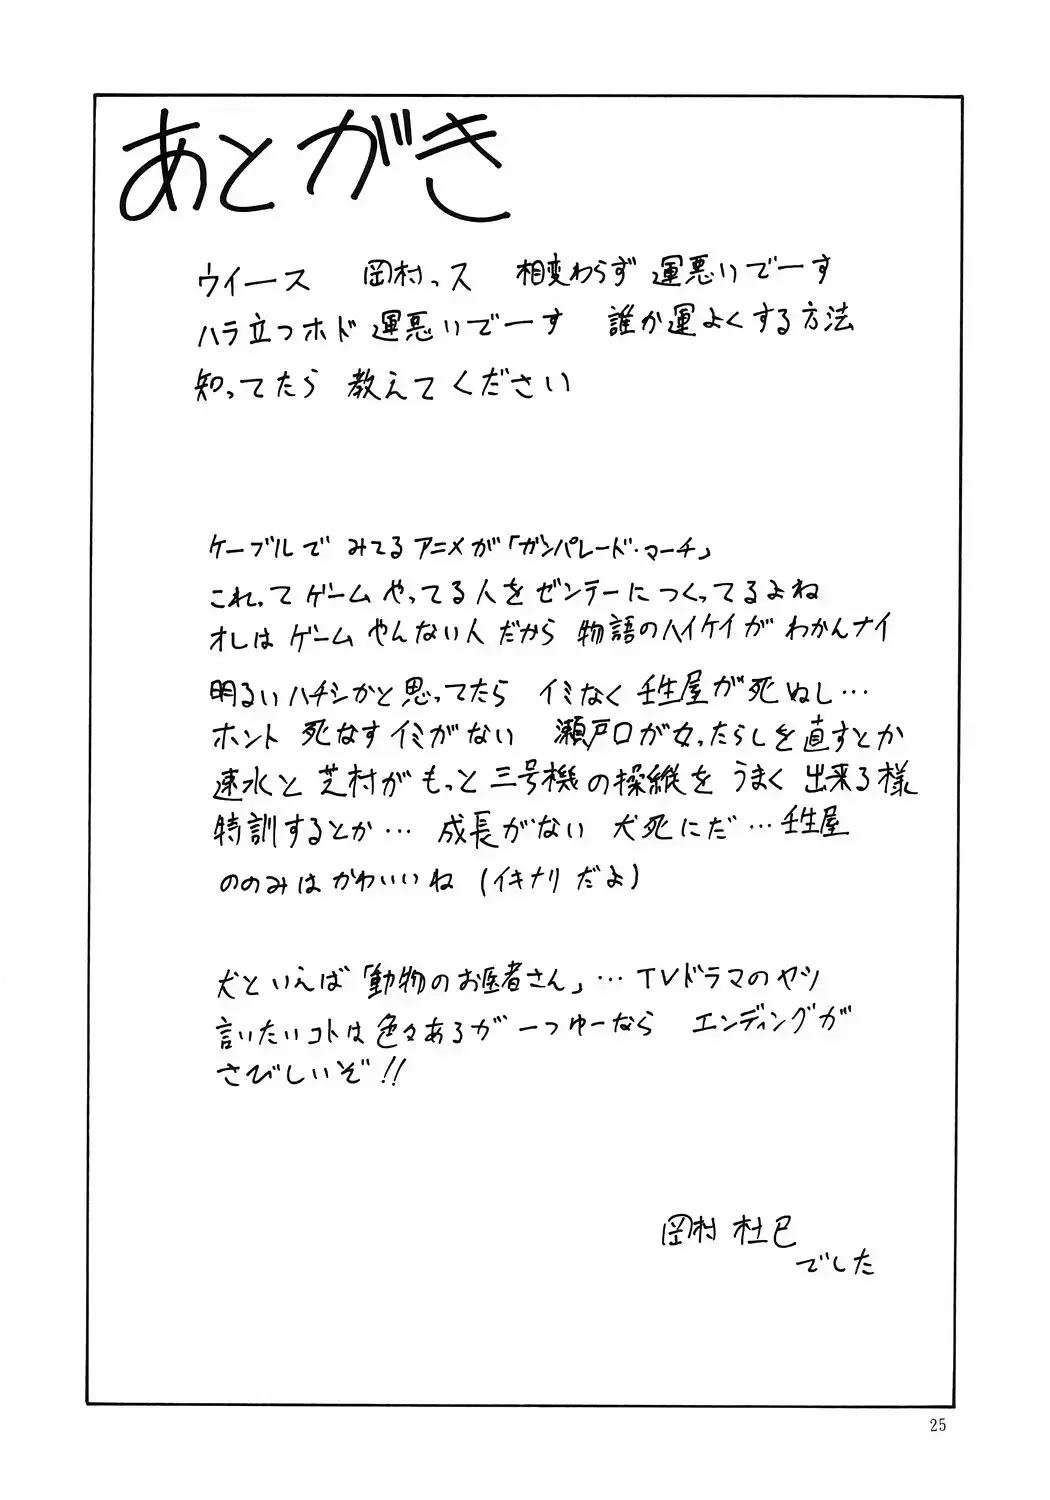 あとがき
ウイース 岡村っス 相変わらず 運悪いでーす
ハラ立つホド 運悪いでーす 誰か運よくする方法
知ってたら 教えてください
ケーブルで みてるアニメが「ガンパレード・マーチ」
これってゲームやってる人をゼンテーにつくってるよね
オレはゲームやんない人だから 物語のハイケイがわかんナイ
明るいハナシかと思ってたら イミなく壬生屋が死ぬし…
ホント 死なすイミがない 瀬戸口が女ったらしを直すとか
速水と芝村がもっと三号機の操縦をうまく出来る様
特訓するとか… 成長がない 犬死にだ…壬生屋
ののみはかわいいね (イキナリだよ)
犬といえば「動物のお医者さん」…TVドラマのヤツ
言いたいコトは色々あるが一つゆーなら エンディングが
さびしいぞ!!
岡村 杜巳
でした
25